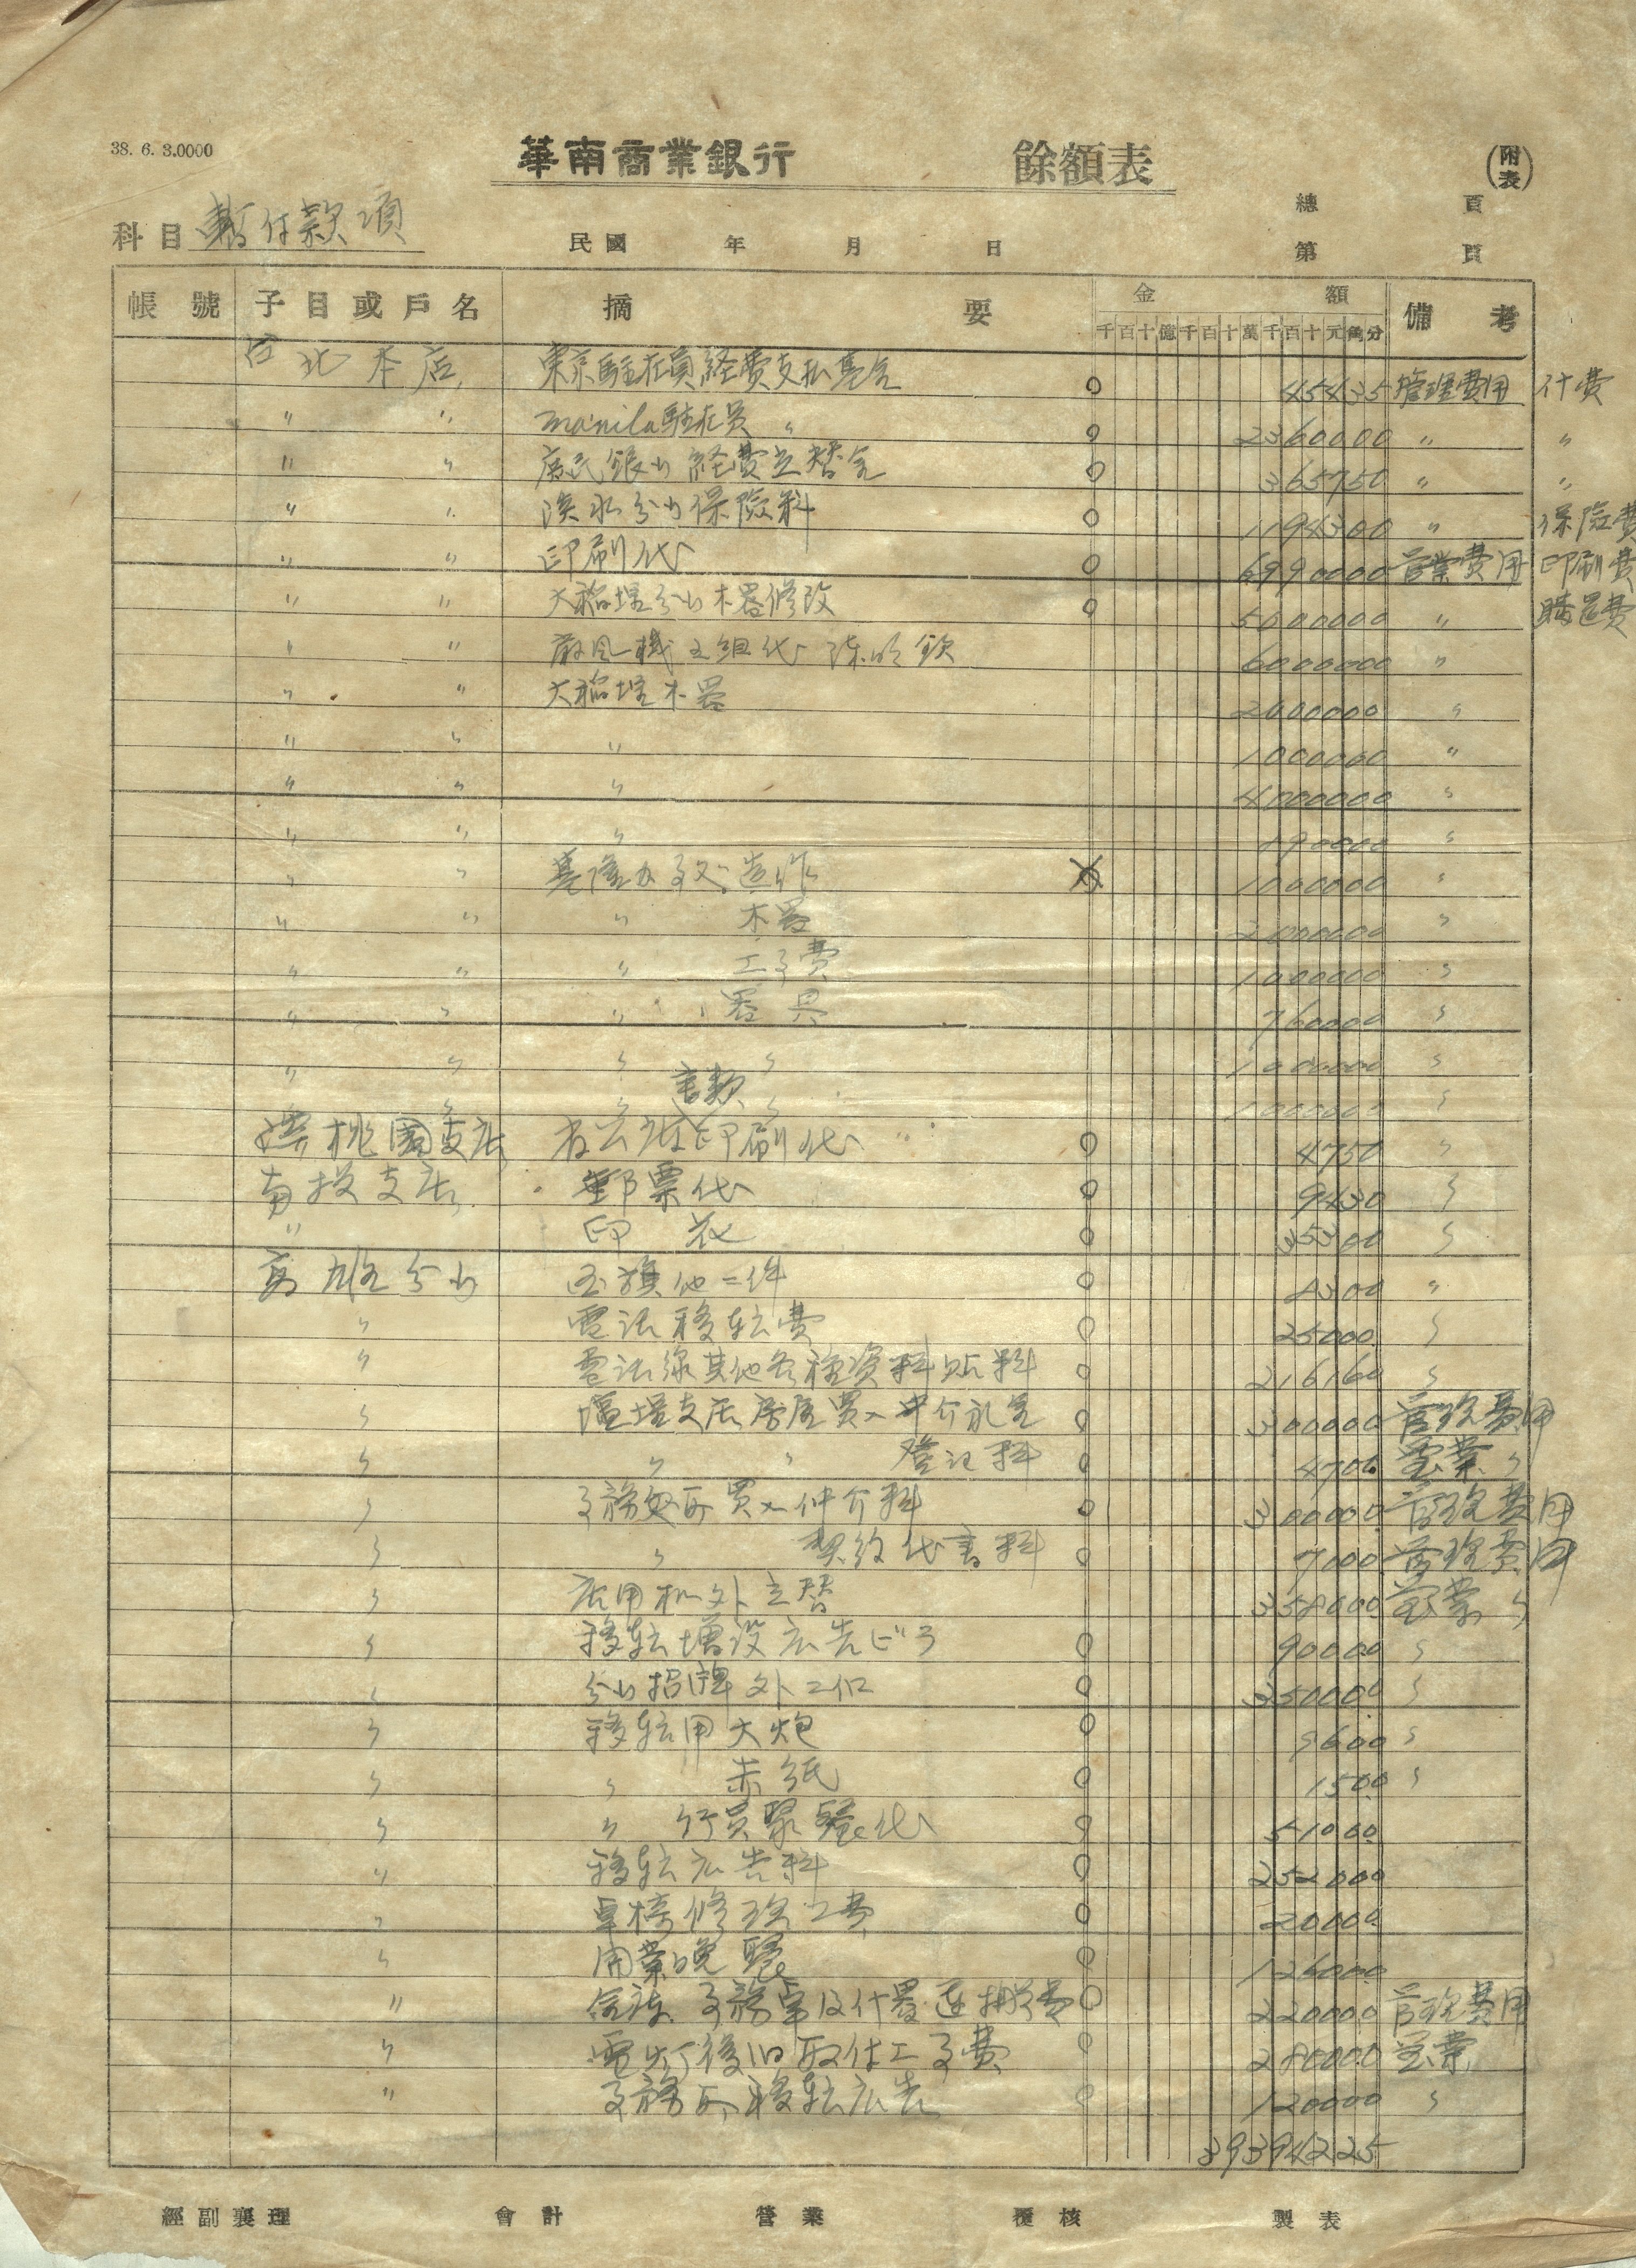 38. 6. 3.0000
華南商業銀行 餘額表 (附表)
總 頁
科目 暫付款項 民國 年 月 日 第 頁
帳號 子目或戶名 摘要 金額 備考
千百十億千百十萬千百十元角分
台北本店 東京駐在員経費支払基金 45435 管理費用 什費
〃 〃 manila駐在員 〃 2360000 〃 〃
〃 〃 庶民銀行経費立替金 365750 〃 〃
〃 〃 淡水分行保險料 1194300 〃 保險費
〃 〃 印刷代 6990000 営業費用 印刷費
〃 〃 大稻埕分行木器修改 5000000 〃 購置費
〃 〃 扇風機五組代 陳 欽 6000000 〃
〃 〃 大稻埕木器 2000000 〃
〃 〃 〃 1000000 〃
〃 〃 〃 4000000 〃
〃 〃 〃 190000 〃
〃 〃 基隆办事処造作 1000000 〃
〃 〃 〃 木器 2000000 〃
〃 〃 〃 工事費 1000000 〃
〃 〃 〃 器具 760000 〃
〃 〃 〃 〃 1000000 〃
〃 〃 〃 書類 〃 1000000 〃
桃園支店 印刷代 4750 〃
南投支店 郵票代 9430 〃
〃 印花 35300 〃
高雄分行 国旗他二件 8300 〃
〃 電話移転費 25000 〃
〃 電話線其他各種資料貼料 216160 〃
〃 塩埕支店房屋買入中介礼金 300000 管理費用
〃 〃 〃 登記料 4700 営業 〃
〃 事務所買入仲介料 300000 管理費用
〃 〃 契約代書料 7000 管理費用
〃 店用机外立替 358000 営業 〃
〃 移転増設広告ビラ 90000 〃
〃 分行招牌外二口 350000 〃
〃 移転用大炮 9600 〃
〃 〃 赤紙 1500 〃
〃 〃 行員聚餐代 51000
〃 移転広告料 252000
〃 卓椅修理工費 20000
〃 開業晩餐 126000
〃 金庫事務卓及什器運搬費 220000 管理費用
〃 電灯復旧取付工事費 280000 営業
〃 事務所移転広告 120000 〃
39394225
經副襄理 會計 營業 覆核 製表